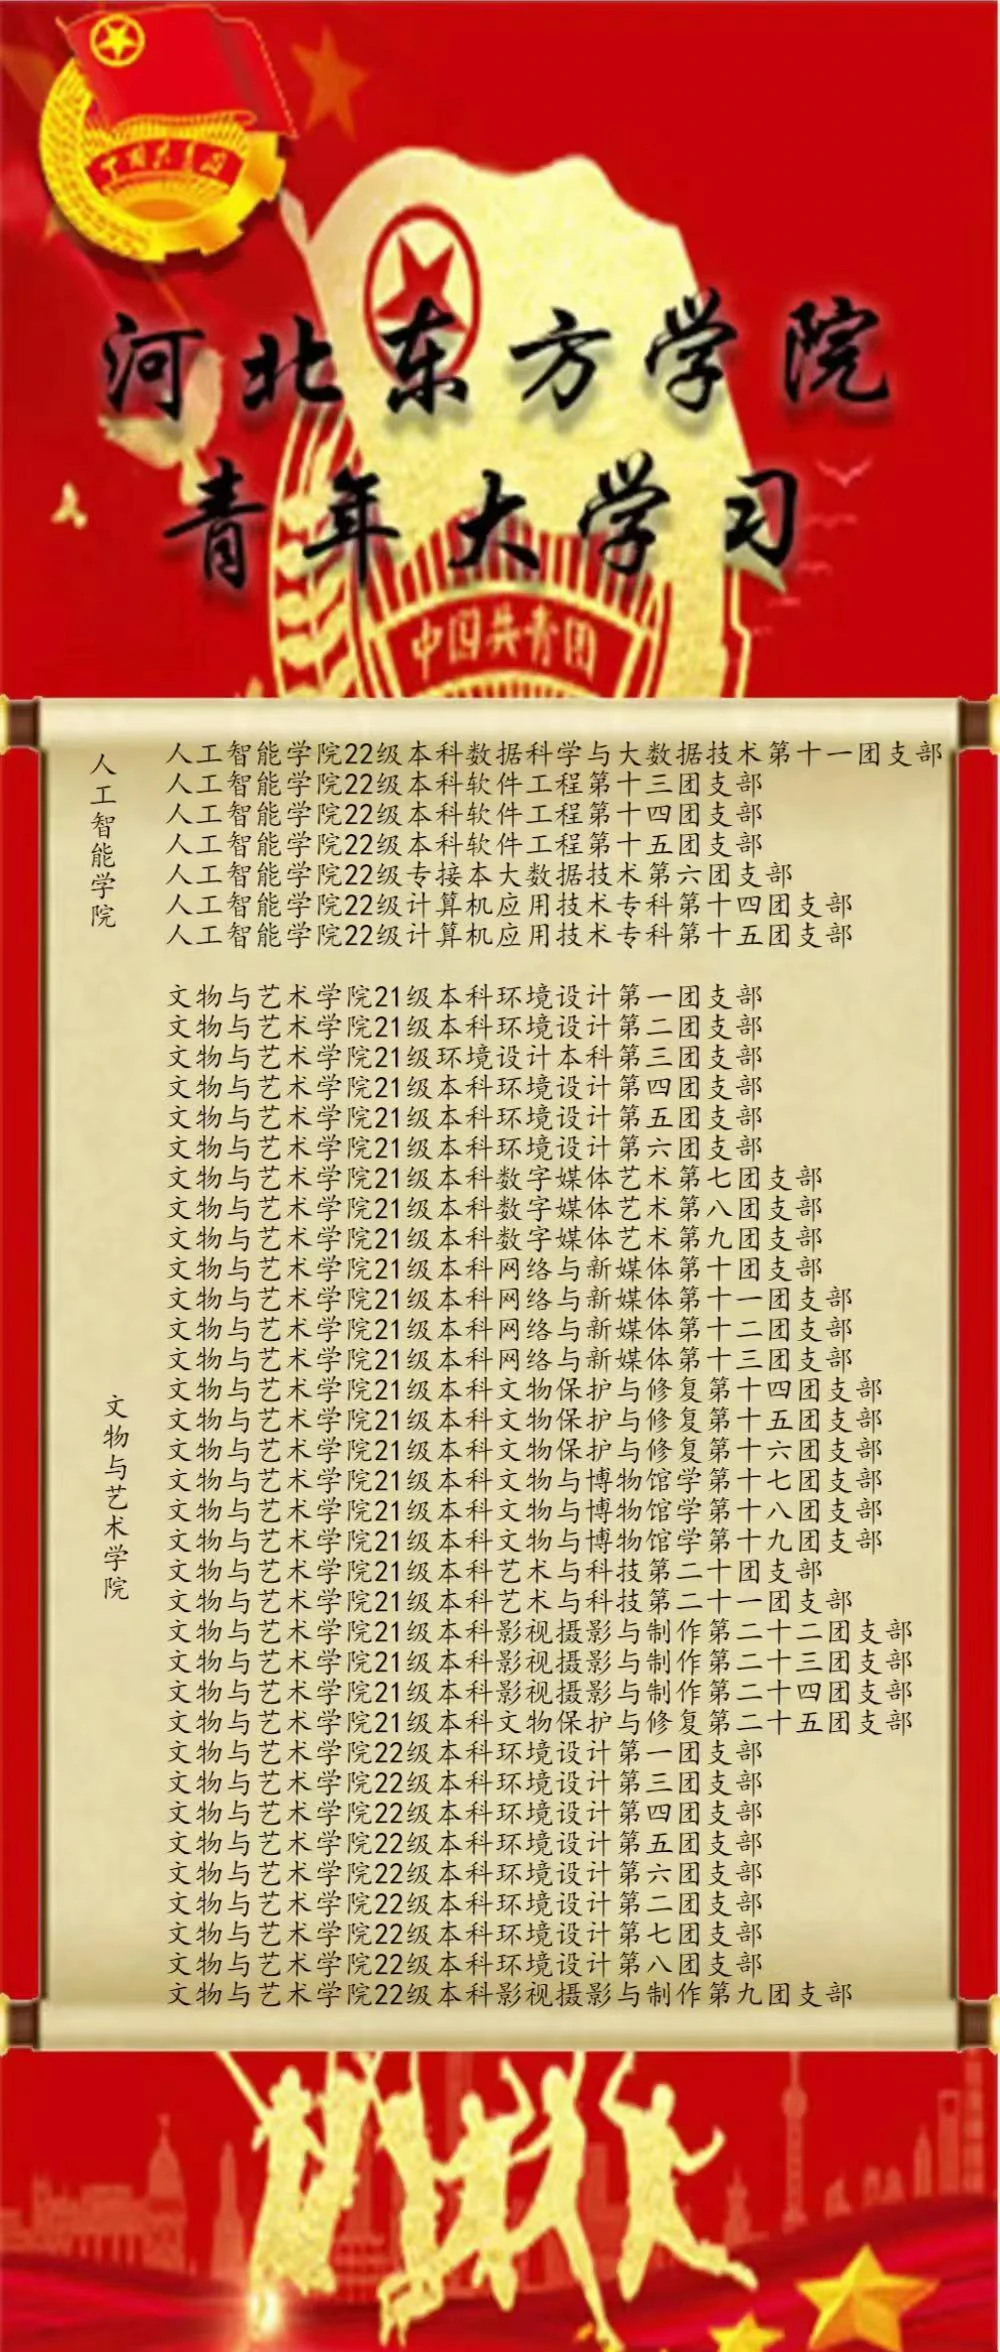 中国共青团
河北东方学院
青年大学习
中国共青团
人工智能学院
人工智能学院22级本科数据科学与大数据技术第十一团支部
人工智能学院22级本科软件工程第十三团支部
人工智能学院22级本科软件工程第十四团支部
人工智能学院22级本科软件工程第十五团支部
人工智能学院22级专接本大数据技术第六团支部
人工智能学院22级计算机应用技术专科第十四团支部
人工智能学院22级计算机应用技术专科第十五团支部
文物与艺术学院
文物与艺术学院21级本科环境设计第一团支部
文物与艺术学院21级本科环境设计第二团支部
文物与艺术学院21级环境设计本科第三团支部
文物与艺术学院21级本科环境设计第四团支部
文物与艺术学院21级本科环境设计第五团支部
文物与艺术学院21级本科环境设计第六团支部
文物与艺术学院21级本科数字媒体艺术第七团支部
文物与艺术学院21级本科数字媒体艺术第八团支部
文物与艺术学院21级本科数字媒体艺术第九团支部
文物与艺术学院21级本科网络与新媒体第十团支部
文物与艺术学院21级本科网络与新媒体第十一团支部
文物与艺术学院21级本科网络与新媒体第十二团支部
文物与艺术学院21级本科网络与新媒体第十三团支部
文物与艺术学院21级本科文物保护与修复第十四团支部
文物与艺术学院21级本科文物保护与修复第十五团支部
文物与艺术学院21级本科文物保护与修复第十六团支部
文物与艺术学院21级本科文物与博物馆学第十七团支部
文物与艺术学院21级本科文物与博物馆学第十八团支部
文物与艺术学院21级本科文物与博物馆学第十九团支部
文物与艺术学院21级本科艺术与科技第二十团支部
文物与艺术学院21级本科艺术与科技第二十一团支部
文物与艺术学院21级本科影视摄影与制作第二十二团支部
文物与艺术学院21级本科影视摄影与制作第二十三团支部
文物与艺术学院21级本科影视摄影与制作第二十四团支部
文物与艺术学院21级本科文物保护与修复第二十五团支部
文物与艺术学院22级本科环境设计第一团支部
文物与艺术学院22级本科环境设计第三团支部
文物与艺术学院22级本科环境设计第四团支部
文物与艺术学院22级本科环境设计第五团支部
文物与艺术学院22级本科环境设计第六团支部
文物与艺术学院22级本科环境设计第二团支部
文物与艺术学院22级本科环境设计第七团支部
文物与艺术学院22级本科环境设计第八团支部
文物与艺术学院22级本科影视摄影与制作第九团支部